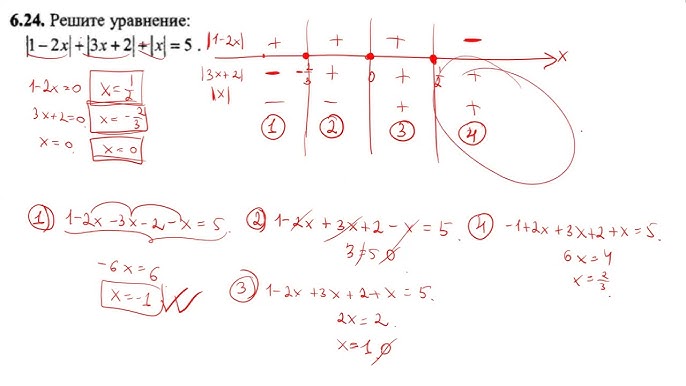 6.24. Решите уравнение:
|1 − 2x| + |3x + 2| + |x| = 5 .
1-2x=0 x=1/2
3x+2=0 x=-2/3
x=0 x=0
|1-2x| + + + −
-1/3 0 1/2 x
|3x+2| − + + +
|x| − − + +
① ② ③ ④
① 1-2x-3x-2-x=5
-6x=6
x=-1
② 1-2x+3x+2-x=5.
3≠5 ∅
③ 1-2x+3x+2+x=5.
2x=2.
x=1 ∅
④ -1+2x+3x+2+x=5.
6x=4
x=2/3